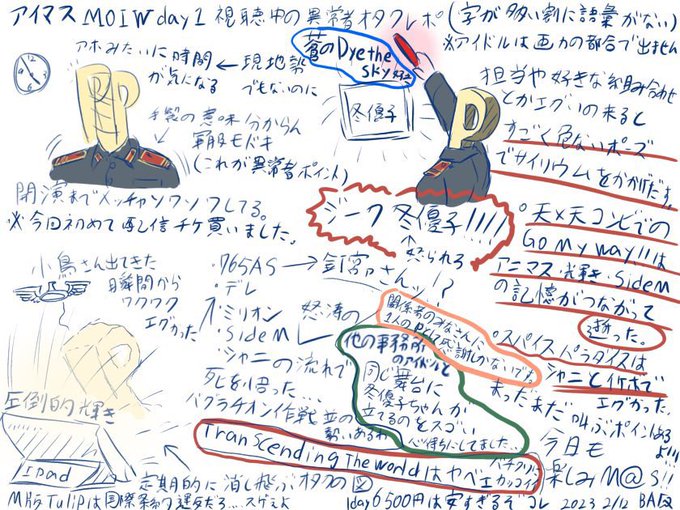 アイマスMOIWday1 視聴中の異常オタクレポ(字が多い割に語彙がない)
※アイドルは画力の都合で出ません
アホみたいに時間が気になる ← 現地勢でもないのに
手製の意味分からん
軍服モドキ
(これが異常者ポイント)
開演までソワソワしてる。
※今回初めて配信チケ買いました。
蒼のDye the
sky
冬優子
担当や好きな組み合わせ
とかエグいの来ると
すごく危ないポーズ
でサイリウムをかかげだす。
ジーク冬優子!!!!
↑怒られろ
天×天コンビでの
Go My way!!は
アニマス・輝き・SideM
の記憶がつながって
逝った。
小鳥さん出てきた
瞬間から
ワクワク
エグかった
・765AS → 釘宮さんッ!?
・デレ
・ミリオン
・SideM
・シャニの流れで
怒涛の
死を悟った…
バグラチオン作戦並の
勢いあるわ
関係者のみなさんに
1人のPとして感謝しかないです。
他の事務所
のアイドルと
同じ舞台に
冬優子ちゃんが
立てるのをスゴい
心待ちにしてました…
スパイスパラダイスは
シャニとイケボで
エグかった。
まだまだ叫ぶポインあるよ!!
今日も
楽しみM@S!!
圧倒的輝き
Ipad
Transcending The worldはヤベエ
カッコイイ
定期的に消し飛ぶオタクの図
MRのTulipは国際条約違反だろ…スゲェよ
1day6500円は安すぎるぞコレ 2023 2/12